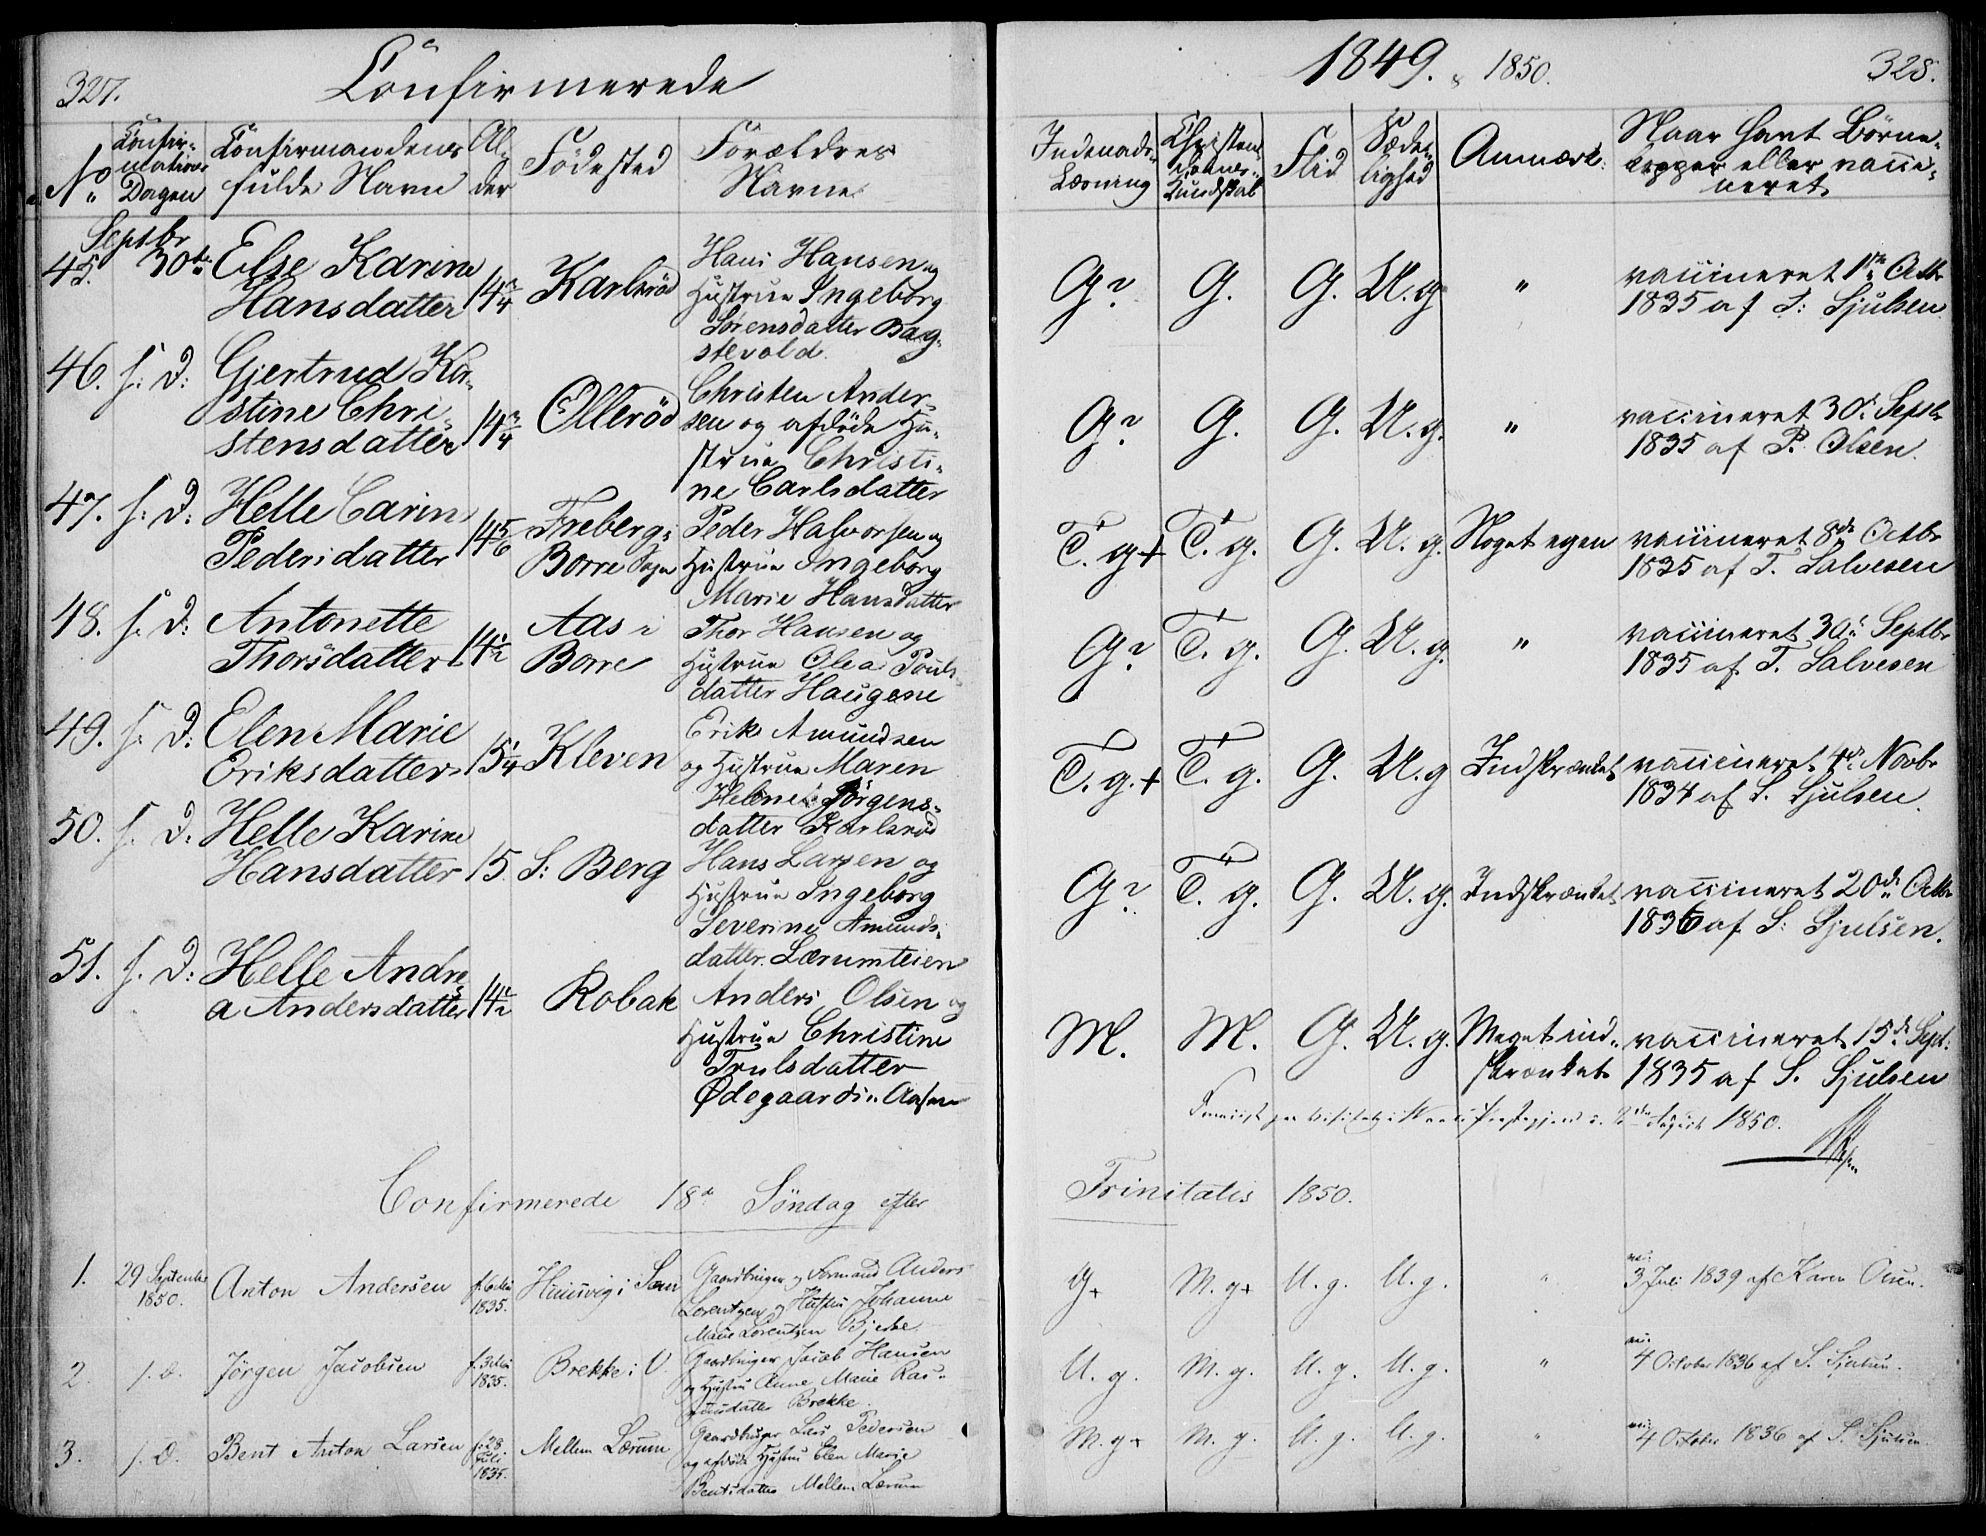 327.
Confirmerede
1849. " 1850.
328.
No
Confir-
mations
Dagen
Confirmandens
fulde Navn
Al-
der
Födested
Forældres
Navne
Indenads-
Læsning
Christen-
doms-
Kundskab
Flid
Sæde-
lighed
Anmærk:
Naar havt Börne-
kopper eller vacci-
neret
Septbr
45. 30te Else Karine
Hansdatter
14 3/4
Karlsröd
Hans Hansen og
Hustrue Ingeborg
Sörensdatter Bag-
stevold.
G? G. G. U. g. "
vaccineret 1ste Octbr
1835 af S: Sjulsen.
46. s: D: Gjertrud Kir-
stine Chri-
stensdatter
14 3/4
Olleröd
Christen Ander-
sen og afdöde Hu-
strue Christi-
ne Carlsdatter
G? G. G. U. g. "
vaccineret 30: Septbr
1835 af P. Olsen.
47. s: D: Helle Carine
Pedersdatter
14 5/6
Freberg i
Borre Sogn
Peder Halvorsen og
Hustrue Ingeborg
Marie Hansdatter
T. g + T. g. G. U. g. Noget egen
vaccineret 8de Octbr
1835 af T. Salvesen
48. s: D: Antonette
Thorsdatter
14 1/2
Aas i
Borre
Thor Hansen og
Hustrue Olea Pouls-
datter Haugene
G? T. g. G. U. g. "
vaccineret 30: Septbr
1835 af T. Salvesen
49. s: D: Elen Marie
Eriksdatter
15 1/4
Kleven
Erik Amundsen
og Hustrue Maren
Helene Jörgens-
datter Karlsröd
T. g. + T. g. G. U. g Indskrænket
vaccineret 4de Novbr
1834 af S. Sjulsen.
50. s: D: Helle Karine
Hansdatter
15.
S: Berg
Hans Larsen og
Hustrue Ingeborg
Severine Amunds-
datter Lærumteien
G? T. g. G. U. g. Indskrænket
vaccineret 20de Octbr
1836 af S: Sjulsen.
51. s. D: Helle Andre-
a Andersdatter
14 1/2
Robak
Anders Olsen og
Hustrue Christine
Trulsdatter
Ødegaard i Aasen
M. M. G. U. g. Meget ind-
skrænket
vaccineret 15de Sept.
1835 af S. Sjulsen
August 1850.
Confirmerede 18de Söndag efter Trinitatis 1850.
1. 29 September
1850.
Anton Andersen
f. 6 Mai
1835.
i Sem
Gaardbruger og Formand Anders
Lorentzen og Hustru Johanne
Marie Lorentzen Bjerke
G+ M. g+ U. g. U. g. "
vac:
3 Juli 1839 af Karen
2. s. D. Jörgen Jacobsen
1835.
Brekke i V.
Gaardbruger Jacob Hansen
og Hustru Anne Marie Ras-
musdatter Brekke
U. g. M. g. U. g. U. g. "
vac:
4 October 1836 af S. Sjulsen.
3. s. D. Bent Anton Larsen
f. 28
Juli
1835.
Mellem Lærum
Gaardbruger Lars Pedersen
og afdöde Hustru Elen Marie
Bentsdatter Mellem Lærum
M. g+ M. g. U. g. U. g. "
vac:
4 October 1836 af S. Sjulsen.